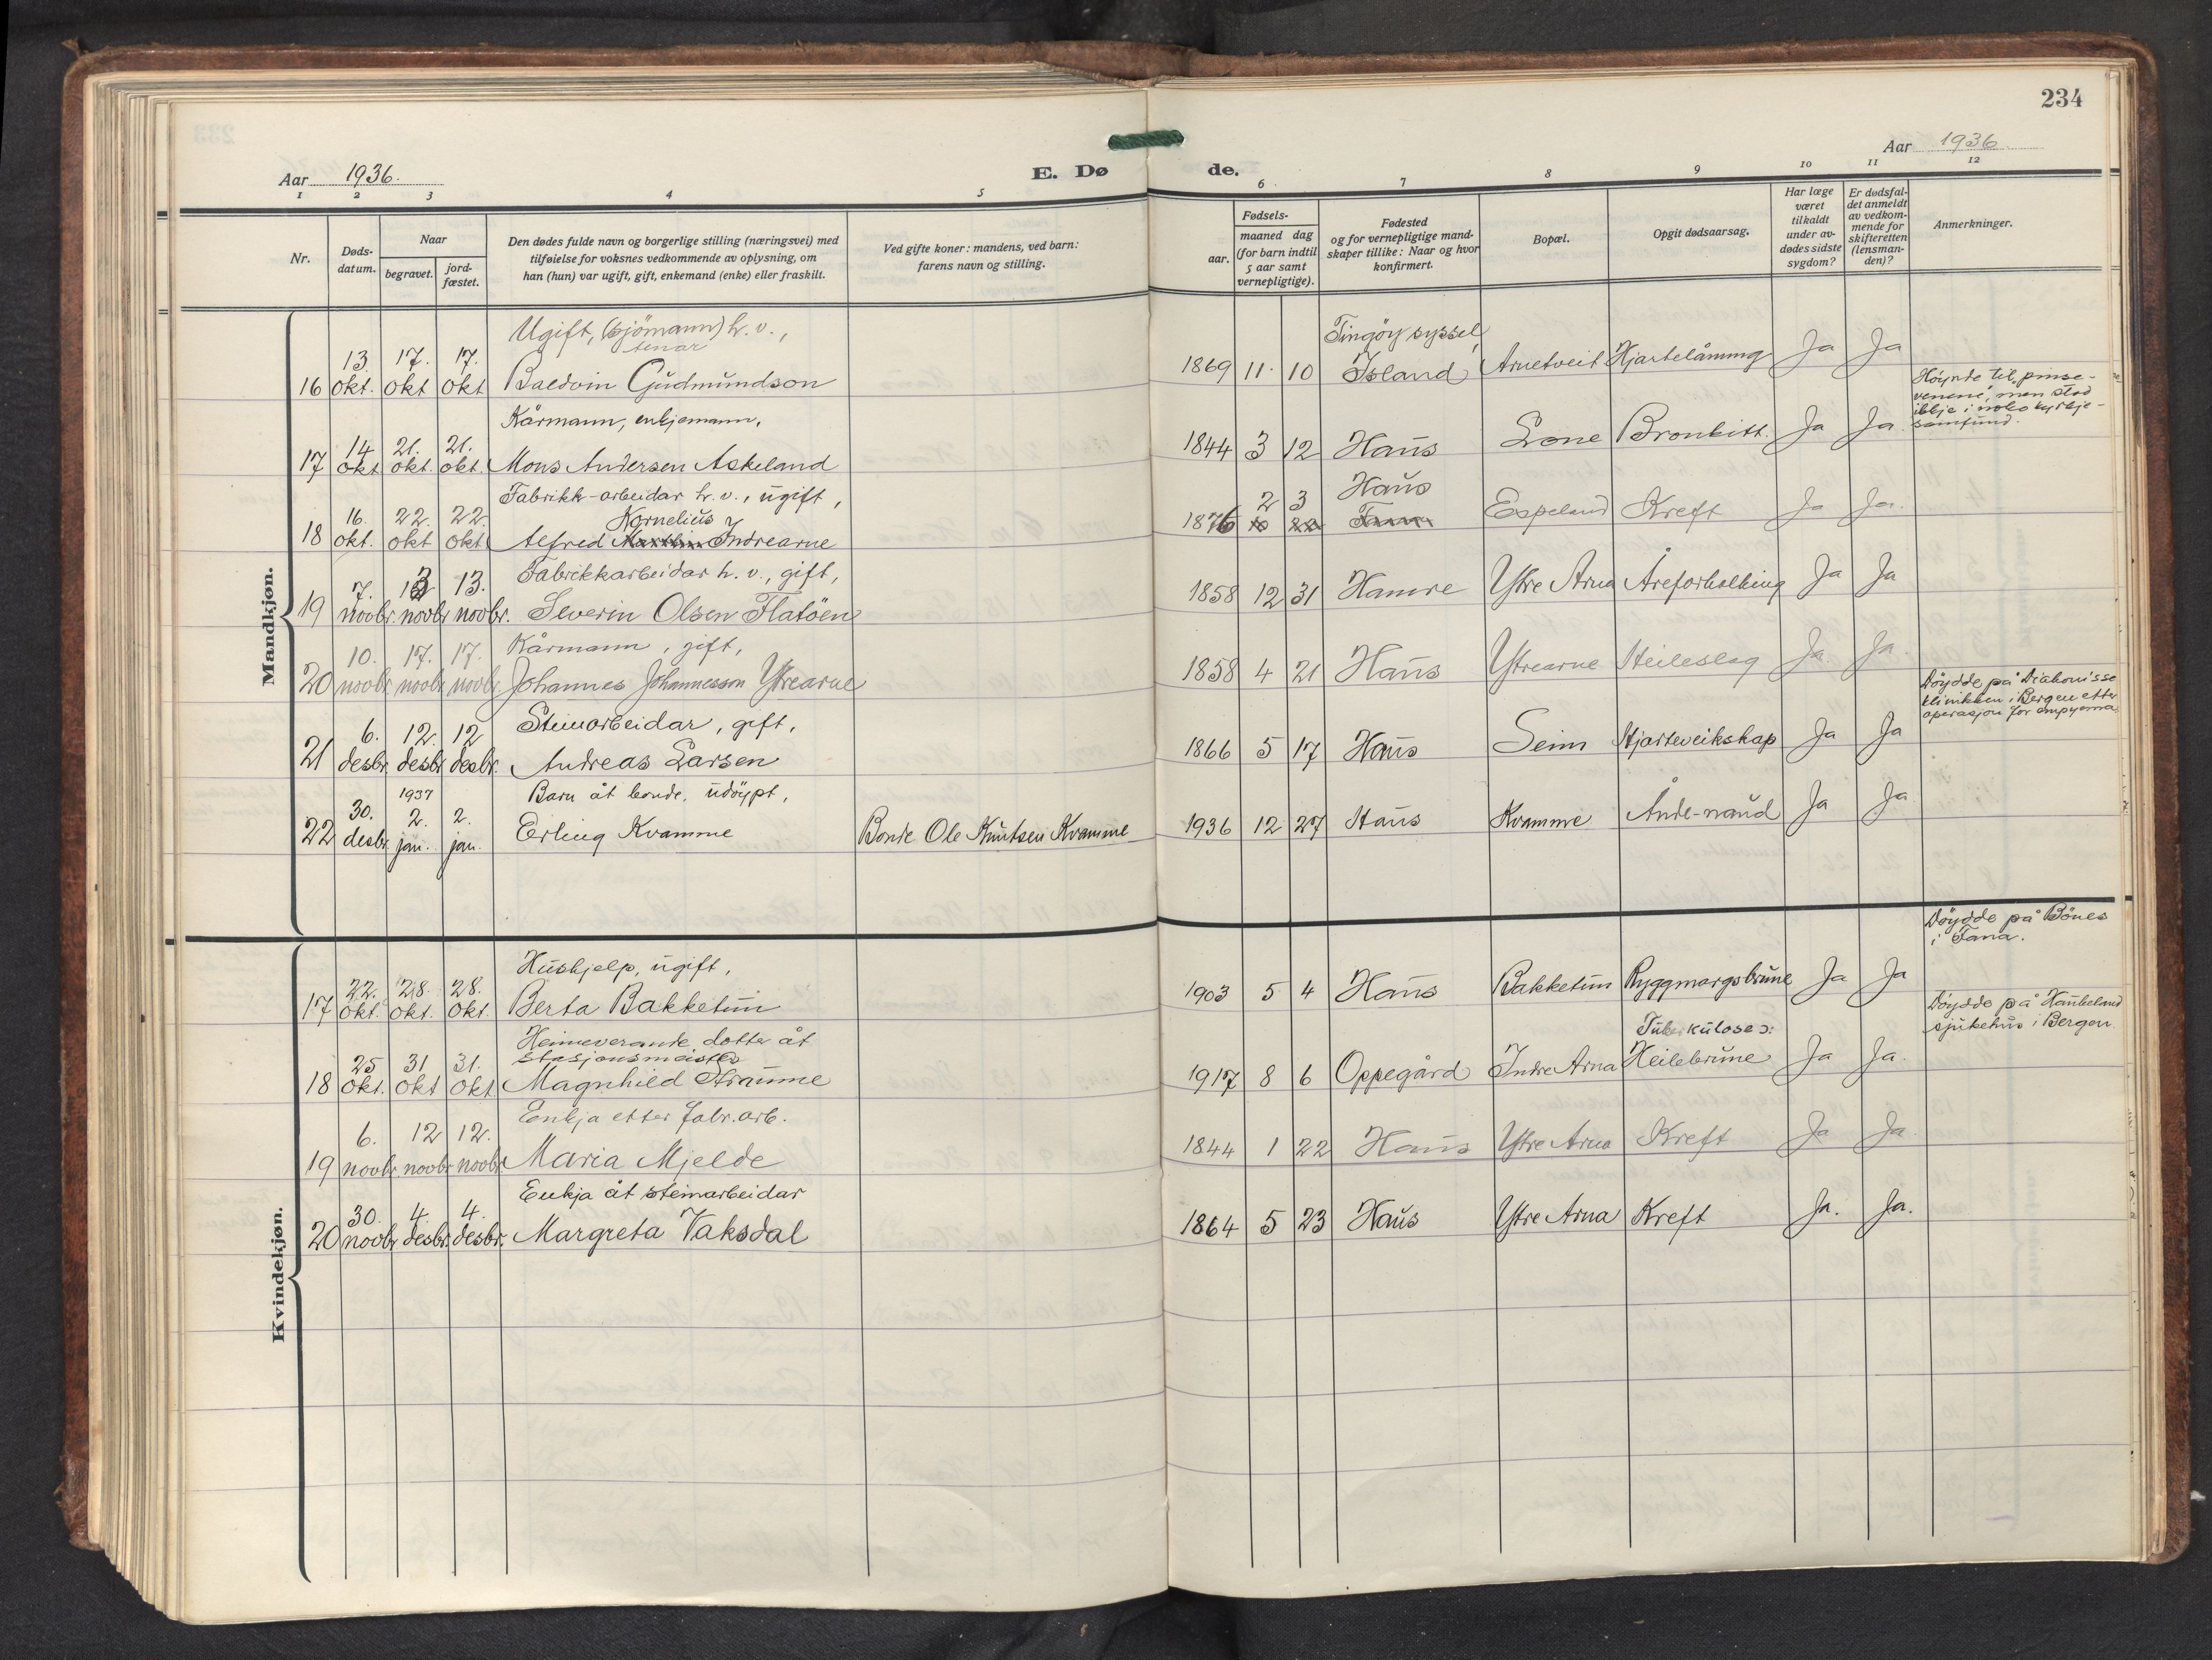 234
Aar 1936.
E. Dø
de.
Aar 1936.
1 2 3 4 5 6 7 8 9 10 11 12
Nr.
Døds-
datum.
Naar
begravet.
jord-
fæstet.
Den dødes fulde navn og borgerlige stilling (næringsvei) med
tilføielse for voksnes vedkommende av oplysning, om
han (hun) var ugift, gift, enkemand (enke) eller fraskilt.
Ved gifte koner: mandens, ved barn:
farens navn og stilling.
Fødsels-
aar.
maaned dag
(for barn indtil
5 aar samt
vernepligtige).
Fødested
og for vernepligtige mand-
skaper tillike: Naar og hvor
konfirmert.
Bopæl.
Opgit dødsaarsag.
Har læge
været
tilkaldt
under av-
dødes sidste
sygdom?
Er dødsfal-
det anmeldt
av vedkom-
mende for
skifteretten
(lensman-
den)?
Anmerkninger.
Mandkjøn.
Ugift, (sjömann) h. v.,
tenar
16 13. okt. 17. okt 17. okt Baldvin Gudmundson 1869 11 10 Tingöy syssel, Island Arnetveit Hjartelåming Ja Ja
Kårmann, enkjemann,
17 14 okt 21. okt. 21. okt. Mons Andersen Askeland 1844 3 12 Haus Lone Bronkitt. Ja Ja
Höyrde til pinse-
venene, men stod
ikkje i noko kyrkje-
samfund.
Fabrikk-arbeidar h. v., ugift,
Kornelius
18 16. okt. 22. okt 22. okt Alfred Indrearne 1876 2 3 Haus Espeland Kreft Ja Ja.
Fabrikkarbeidar h. v., gift,
19 7. novbr. 13 novbr. 13. novbr. Severin Olsen Flatöen 1858 12 31 Hamre Ytre Arna Åreforkalking Ja Ja
Kårmann, gift,
20 10. novbr. 17. novbr. 17. novbr. Johannes Johannesson Ytrearne 1858 4 21 Haus Ytrearne Heileslag Ja Ja.
Steinarbeidar, gift,
21 6. desbr. 12. desbr. 12 desbr. Andreas Larsen 1866 5 17 Haus Seim Hjarteveikskap Ja Ja
Döydde på Diakonisse
klinikken i Bergen etter
operasjon for empyema.
Barn åt bonde, udöypt,
22 30. desbr. 1937 2. jan. 2. jan. Erling Kvamme Bonde Ole Knutsen Kvamme 1936 12 27 Haus Kvamme Ånde-naud Ja Ja
Kvindekjøn.
Hushjelp, ugift,
17 22. okt. 28. okt. 28. okt. Berta Bakketun 1903 5 4 Haus Bakketun Ryggmargsbrune Ja Ja
Döydde på Bönes
i Fana.
Heimeverande dotter åt
stasjonsmeister
18 25 okt. 31 okt 31. okt Magnhild Straume 1917 8 6 Oppegård Indre Arna Tuberkulose ɔ: Heilebrune Ja Ja.
Döydde på Haukeland
sjukehus i Bergen
Enkja etter fabr. arb.
19 6. novbr 12 novbr 12. novbr Maria Mjelde 1844 1 22 Haus Ytre Arna Kreft Ja Ja
Enkja åt steinarbeidar
20 30. novbr 4. desbr. 4. desbr. Margreta Vaksdal 1864 5 23 Haus Ytre Arna Kreft Ja. Ja.